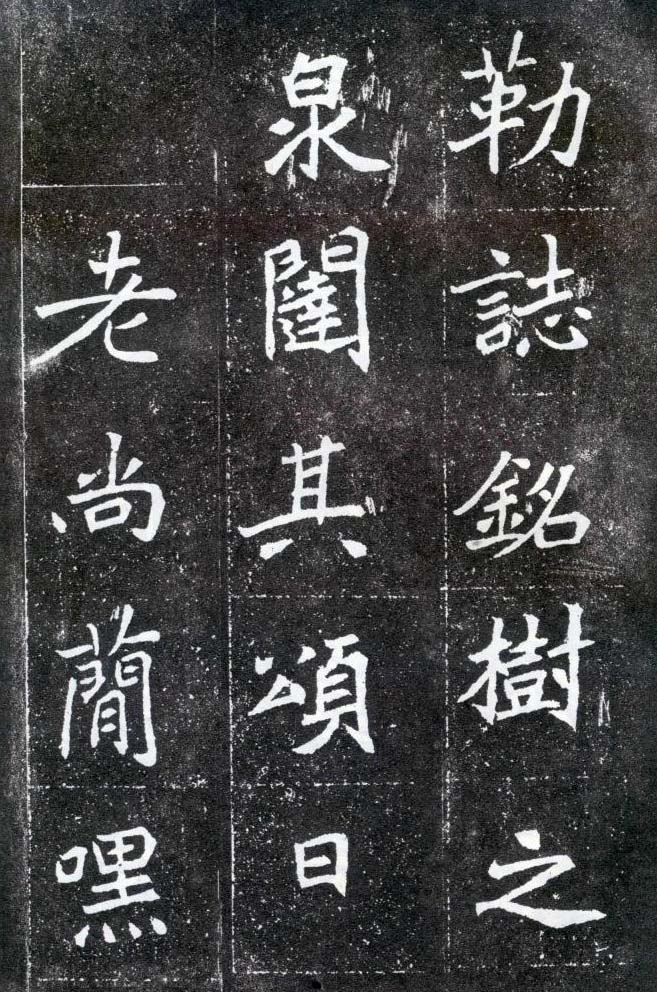 勒誌銘樹之
泉闥其頌曰
老尚簡嘿